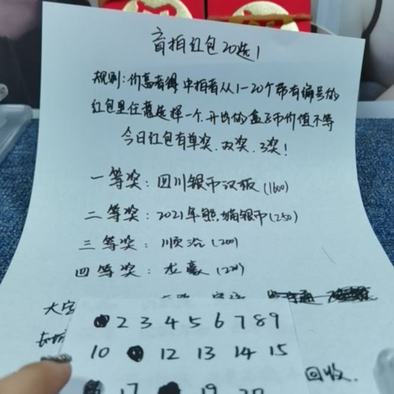 盲拍红包20选1
规则:价高者得 中拍者从1-20个带有编号的
红包里任意选择一个.开出的盒子币价值不等
今日红包有单奖.双奖.3奖!
一等奖:四川银币汉版(1600)
二等奖:2021年熊猫银币(250)
三等奖:顺治(200)
四等奖:龙豪(220)
2 3 4 5 6 7 8 9
10 12 13 14 15
17 19 20
回收.